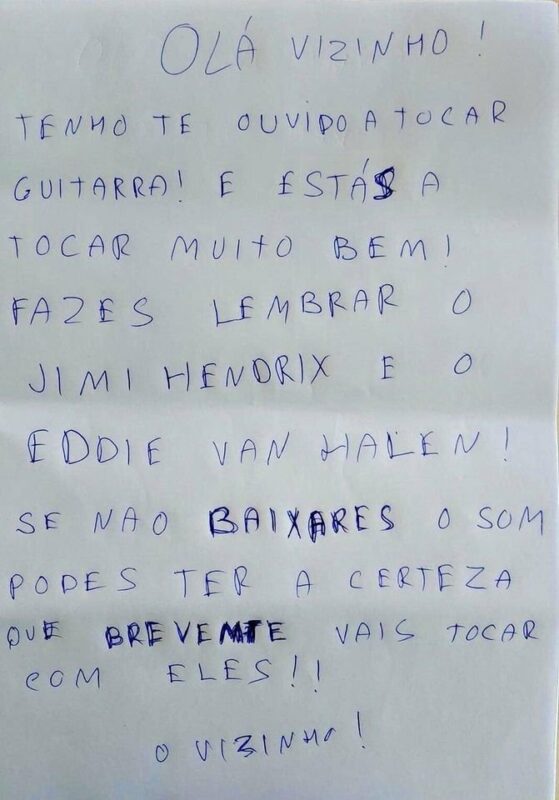 OLÁ VIZINHO!
TENHO TE OUVIDO A TOCAR
GUITARRA! E ESTÁS A
TOCAR MUITO BEM!
FAZES LEMBRAR O
JIMI HENDRIX E O
EDDIE VAN HALEN!
SE NAO BAIXARES O SOM
PODES TER A CERTEZA
QUE BREVEMTE VAIS TOCAR
COM ELES!!
O VIZINHO!